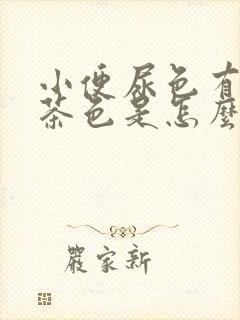 小便尿色有
茶色是怎麼
嚴家新